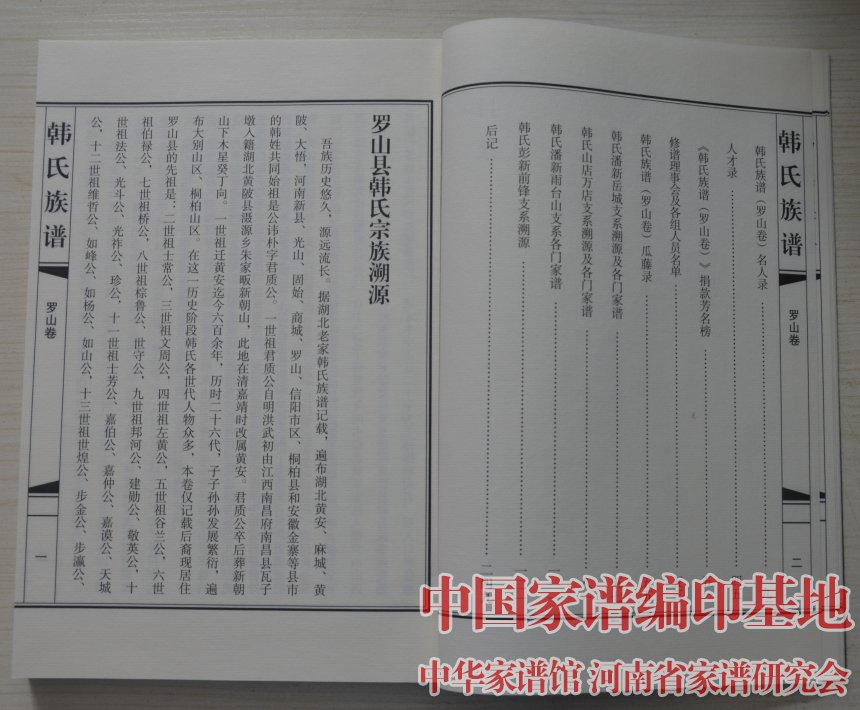 韩氏族谱
罗山卷
二
韩氏族谱（罗山卷）名人录
人才录
《韩氏族谱（罗山卷）》捐款芳名榜
修谱理事会及各组人员名单
韩氏族谱（罗山卷）瓜藤录
韩氏潘新岳城支系溯源及各门家谱
韩氏山店万店支系溯源及各门家谱
韩氏潘新雨台山支系各门家谱
韩氏彭新前锋支系溯源
后记
罗山县韩氏宗族溯源
吾族历史悠久，源远流长。据湖北老家韩氏族谱记载，遍布湖北黄安、麻城、黄
陂、大悟，河南新县、光山、固始、商城、罗山、信阳市区、桐柏县和安徽金寨等县市
的韩姓共同始祖是公讳朴字君质公。一世祖君质公自明洪武初由江西南昌府南昌县瓦子
墩入籍湖北黄陂县滠源乡朱家畈新朝山，此地在清嘉靖时改属黄安。君质公卒后葬新朝
山下木星癸丁向。一世祖迁黄安迄今六百余年，历时二十六代，子子孙孙发展繁衍，遍
布大别山区、桐柏山区。在这一历史阶段韩氏各世代人物众多，本卷仅记载后裔现居住
罗山县的先祖是：二世祖士常公，三世祖文周公，四世祖左黄公，五世祖谷兰公，六世
祖伯禄公，七世祖桥公，八世祖棕鲁公、世守公，九世祖邦河公、建勋公、敬英公，十
世祖法公、光斗公、光祚公、珍公，十一世祖士芳公、嘉伯公、嘉仲公、嘉谟公、天城
公，十二世祖维哲公、如峰公、如杨公、如山公，十三世祖世煌公、步金公、步瀛公、
韩氏族谱
罗山卷
一
中国家谱编印基地
中华家谱馆 河南省家谱研究会